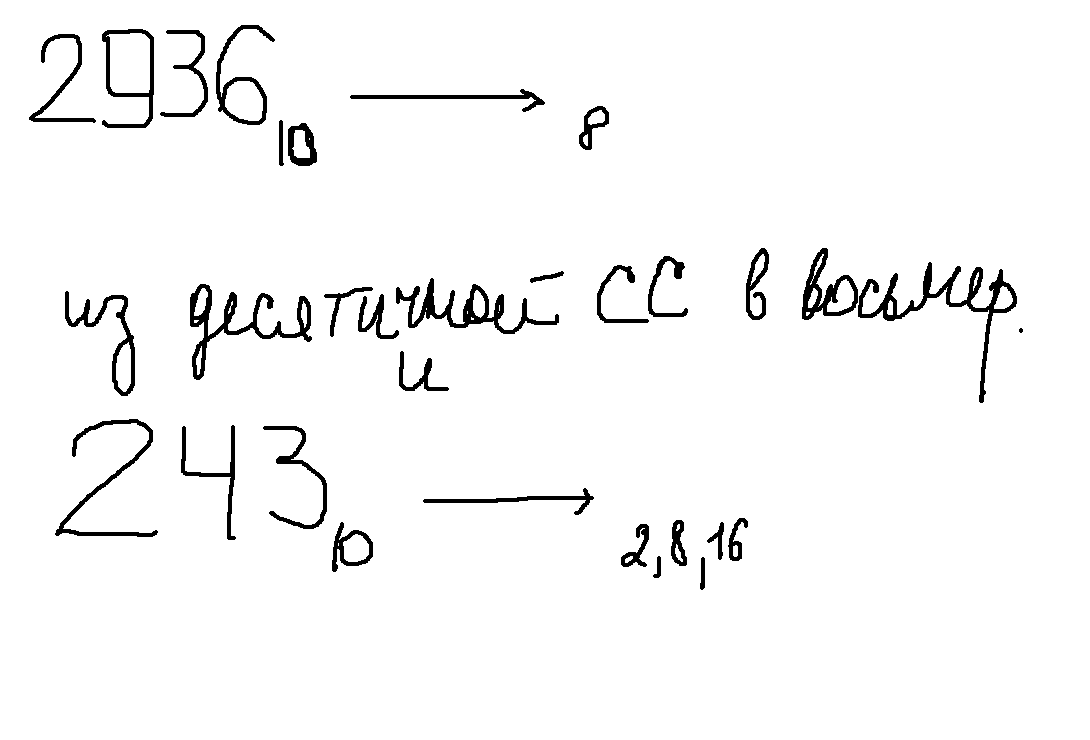 2936₁₀ → ₈
из десятичной СС в восьмер.
и
243₁₀ → ₂,₈,₁₆